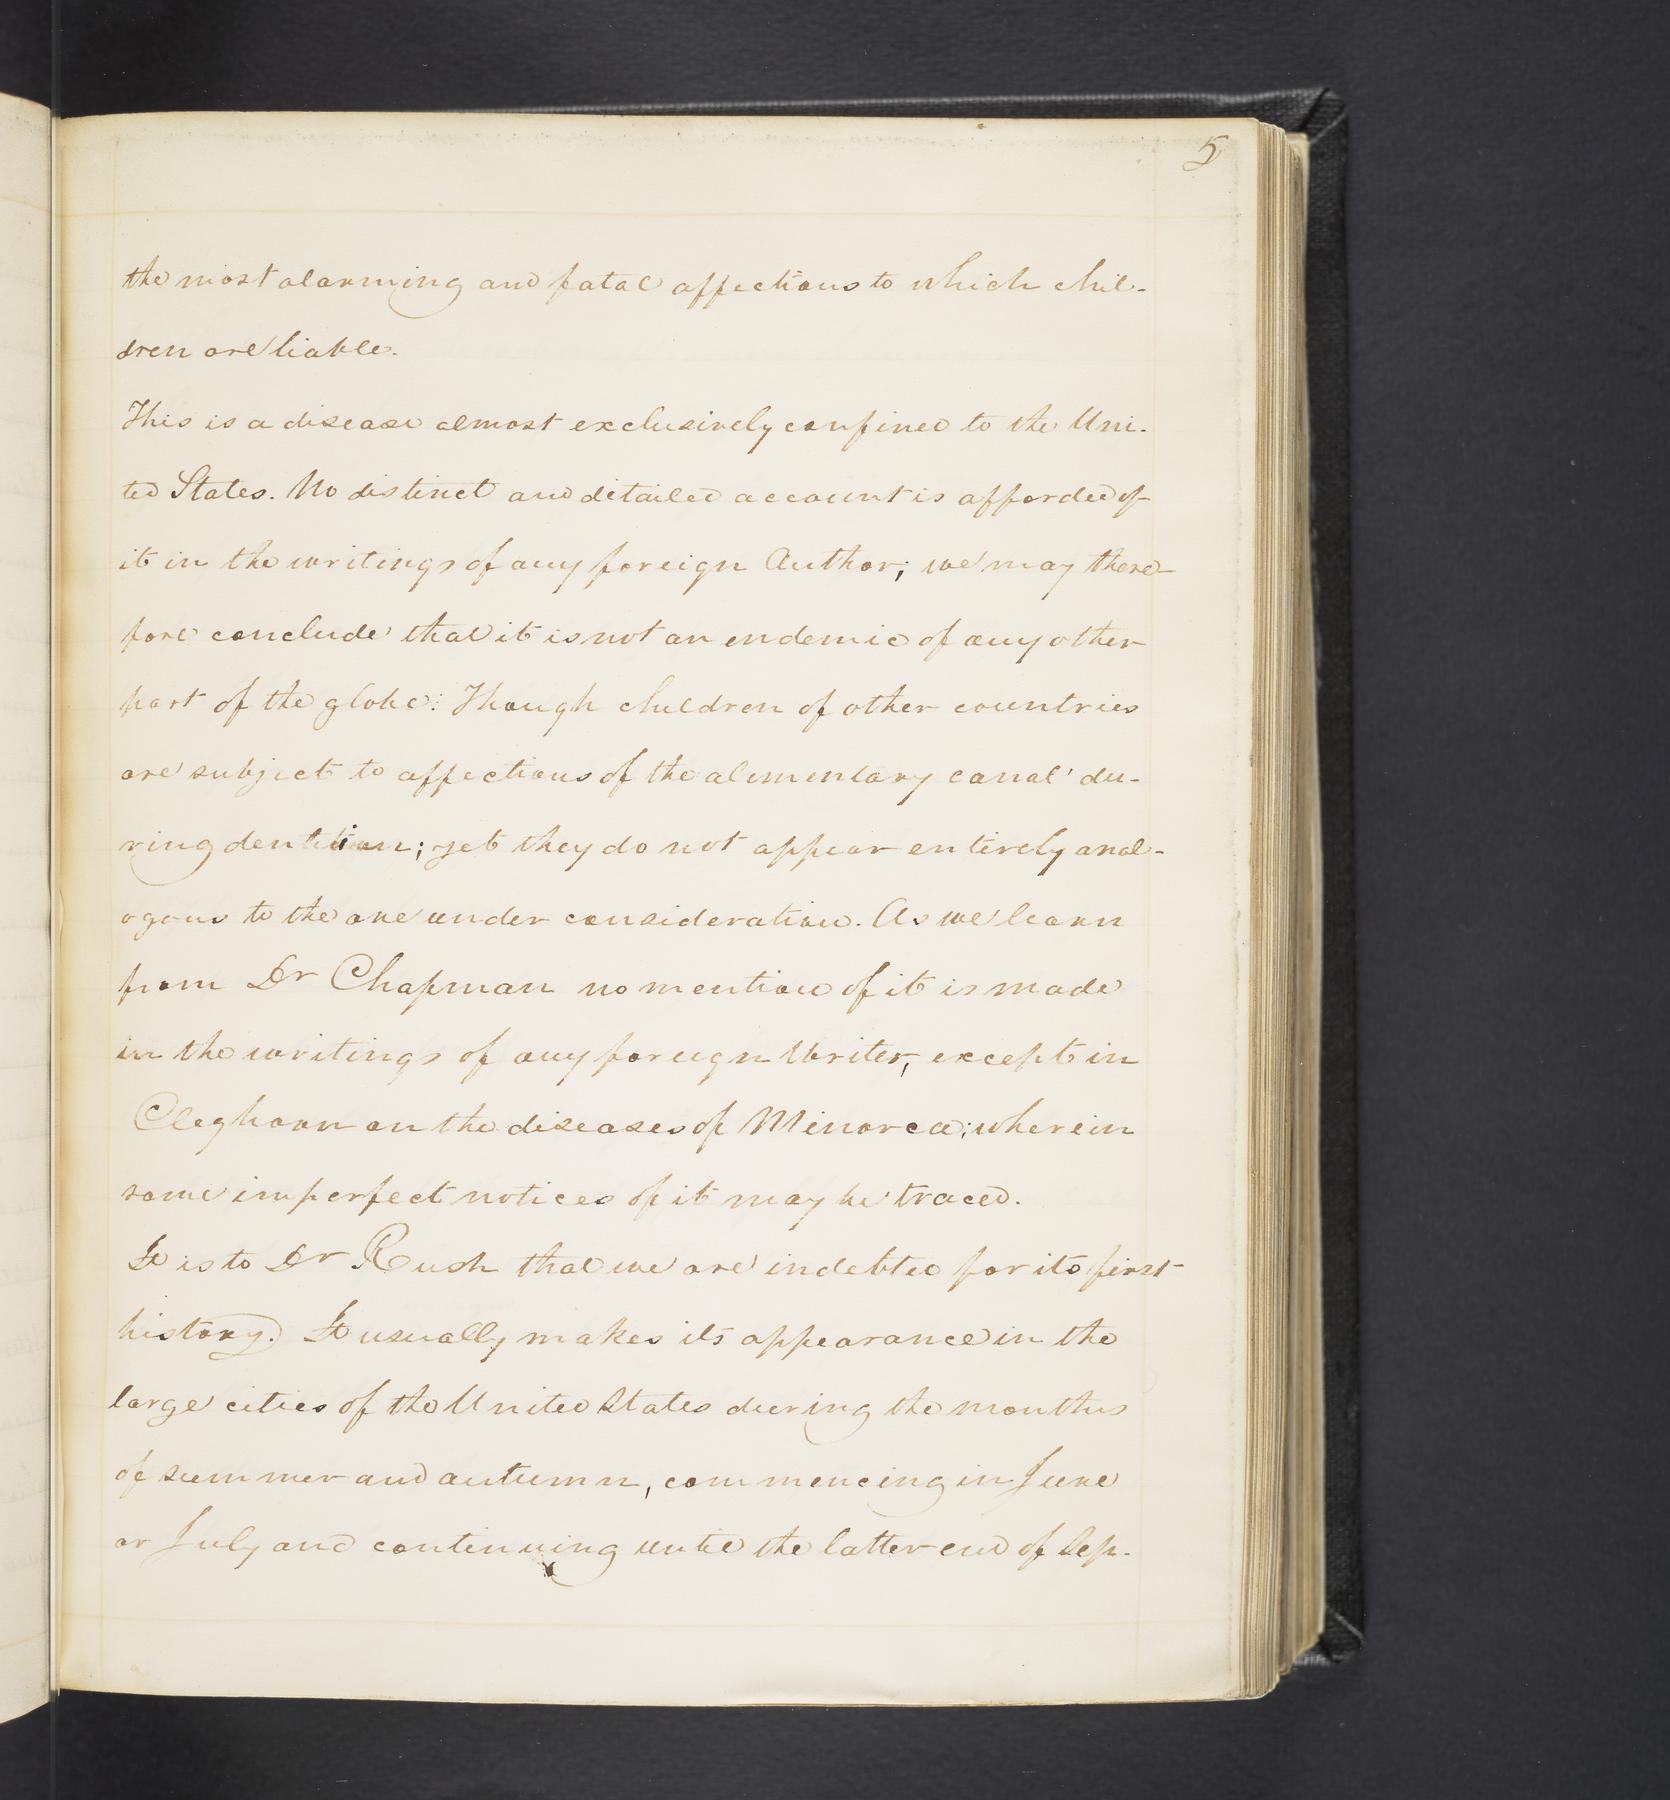 5
the most alarming and fatal affections to which chil-
dren are liable.
This is a disease almost exclusively confined to the Uni-
ted States. No distinct and detailed account is afforded of
it in the writings of any foreign Author; we may there-
fore conclude that it is not an endemic of any other
part of the globe: Though children of other countries
are subject to affections of the alimentary canal du-
ring dentition; yet they do not appear entirely anal-
ogous to the one under consideration. As we learn
from Dr Chapman no mention of it is made
in the writings of any foreign Writer, except in
Cleghorn on the diseases of Minorca; wherein
some imperfect notices of it may be traced.
It is to Dr Rush that we are indebted for its first
history. It usually makes its appearance in the
large cities of the United States during the months
of summer and autumn, commencing in June
or July and continuing until the latter end of Sep-